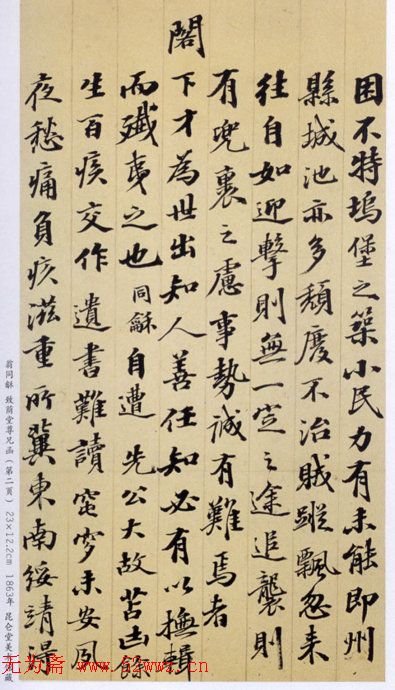 困不特塢堡之築小民力有未能即州
縣城池亦多頹廢不治賊蹤飄忽来
往自如迎擊則無一定之途追襲則
有兜裹之慮事勢誠有難焉者
閣下才為世出知人善任知必有以撫輯
而殲夷之也同龢自遭 先公大故苦凷餘
生百疾交作 遺書難讀窀穸未安夙
夜愁痛負疚滋重所冀東南綏靖
翁同龢 致荫堂尊兄函(第二頁) 23×12.2cm 1863年 昆仑堂美 藏
无为斋 www.52wwz.cn